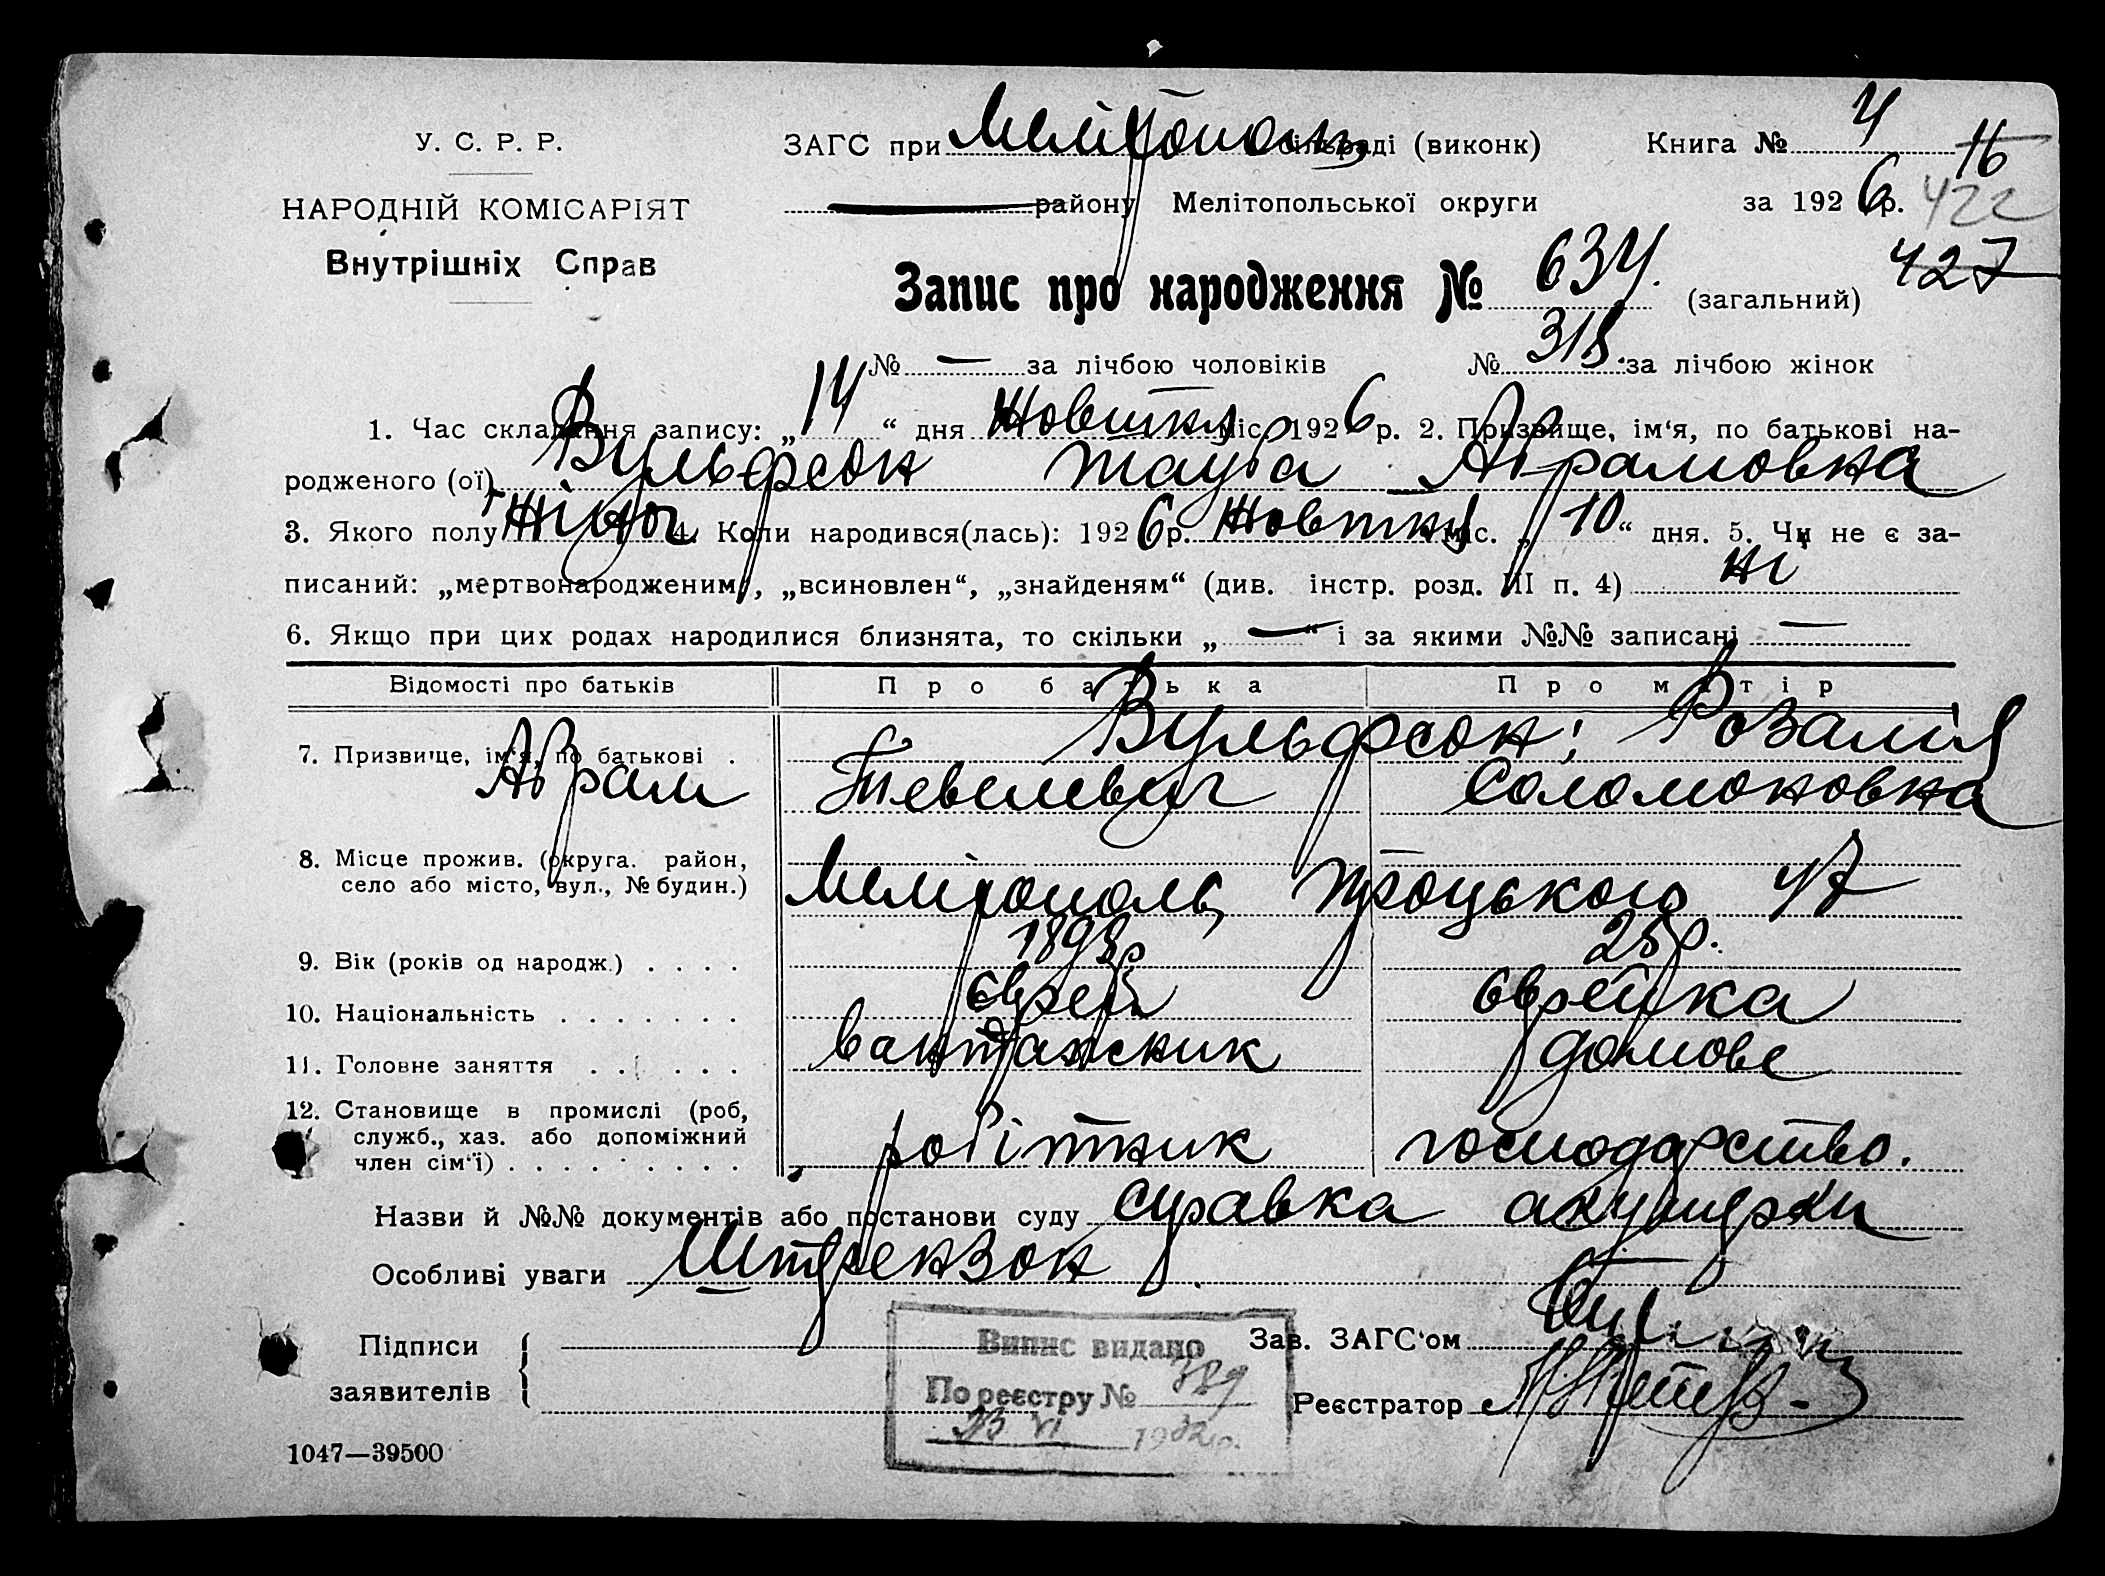 У. С. Р. Р.
НАРОДНІЙ КОМІСАРІЯТ
Внутрішніх Справ
ЗАГС при Мелітополь сільраді (виконк)
району Мелітопольської округи
Книга № 4
16
за 1926 р. 422
427
Запис про народження № 634. (загальний)
№ — за лічбою чоловіків № 318. за лічбою жінок
1. Час складання запису: „14“ дня Жовтня міс. 1926 р. 2. Призвище, ім‘я, по батькові на-
родженого (ої) Вульфсон Тауба Абрамовна
3. Якого полу Жіночої 4. Коли народився(лась): 1926 р. Жовтня міс. „10“ дня. 5. Чи не є за-
писаний: „мертвонародженим“, „всиновлен“, „знайденям“ (див. інстр. розд. III п. 4) ні
6. Якщо при цих родах народилися близнята, то скільки „—“ і за якими №№ записані —
Відомості про батьків Про батька Про матір
7. Призвище, ім‘я, по батькові . Вульфсон; Розалія
Абрам Тевелевич Соломоновна
8. Місце прожив. (округа. район,
село або місто, вул., № будин.) Мелітополь Троцького 47
9. Вік (років од народж.) . . . . 1898р 25р.
10. Національність . . . . . . . Єврей Єврейка
11. Головне заняття . . . . . . вантажник домове
12. Становище в промислі (роб,
служб., хаз. або допоміжний
член сім‘ї) . . . . . . . . . робітник господарство.
Назви й №№ документів або постанови суду справка акушерки
Особливі уваги Штрензон
Підписи
заявителів
Випис видано
По реєстру № 389
23 VI 1932 р.
Зав. ЗАГС‘ом
Реєстратор
1047—39500